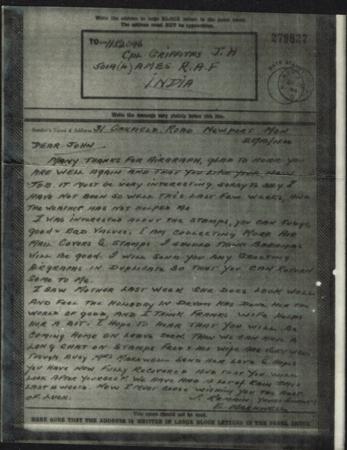 Write the address in large BLOCK letters in the panel below.
The address must NOT be typewritten.
TO:- 1152046
CPL GRIFFITHS J. H
5019 (H) AMES R.A.F
INDIA
279627
Write the message very plainly below this line.
Sender's Address 31 OAKFIELD ROAD NEWPORT MON
DEAR JOHN
MANY THANKS FOR AIRGRAPH, GLAD TO HEAR YOU
ARE WELL AGAIN AND THAT YOU LIKE YOUR NEW
JOB. IT MUST BE VERY INTERESTING, SORRY TO SAY I
HAVE NOT BEEN SO WELL THIS LAST FEW WEEKS, AND
THE WEATHER HAS NOT HELPED ME
I WAS INTERESTED ABOUT THE STAMPS, YOU CAN JUDGE
GOOD & BAD VALUES, I AM COLLECTING WORD AIR
MAIL COVERS & STAMPS I SHOULD THINK
WILL BE GOOD. I WILL SEND YOU ANY GREETING
AIRGRAPHS IN DUPLICATE SO THAT YOU CAN RETURN
SOME TO ME.
I SAW MOTHER LAST WEEK SHE DOES LOOK WELL
AND FEEL THE HOLIDAY IN DEVON HAS DONE HER THE
WORLD OF GOOD, AND I THINK FRANKS WIFE HELPS
HER A BIT. I HOPE TO HEAR THAT YOU WILL BE
COMING HOME ON LEAVE SOON THEN WE CAN HAVE A
LONG CHAT ON STAMPS. AND HIS WIFE ARE QUITE WELL
THOUGH BUSY MRS MARKWELL SEND HER LOVE & HOPES
YOU HAVE NOW FULLY RECOVERED AND THAT YOU WILL
LOOK AFTER YOURSELF. WE HAVE HAD A LOT OF RAIN THIS
LAST WEEK. NOW I MUST CLOSE WISHING YOU THE BEST
OF LUCK. I REMAIN YOURS
F. MARKWELL
MAKE SURE THAT THE ADDRESS IS WRITTEN IN LARGE BLOCK LETTERS IN THE PANEL ABOVE